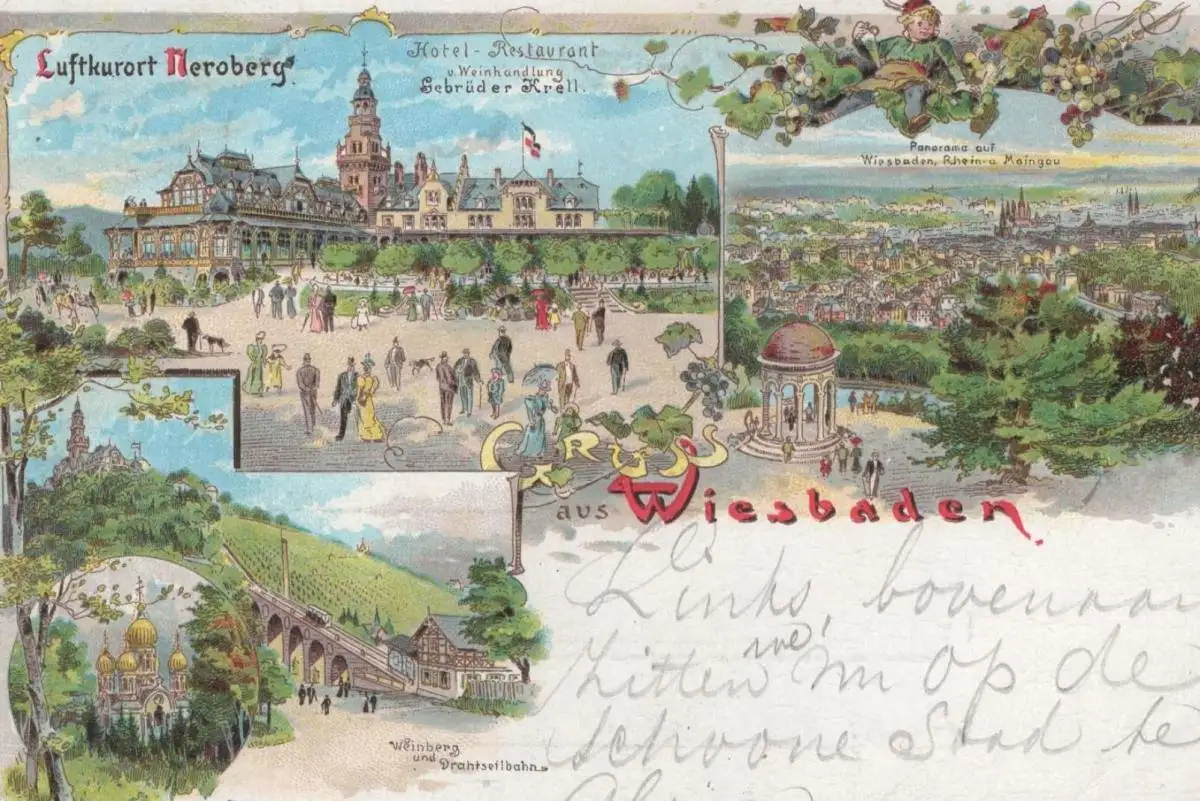 Luftkurort Neroberg.
Hotel-Restaurant
u. Weinhandlung
Gebrüder Krell.
Panorama auf
Wiesbaden, Rhein- u. Maingau
GRUSS
aus Wiesbaden.
Links, bovenaan
zitten we nu op de
schoone Stad te
Weinberg
und
Drahtseilbahn.